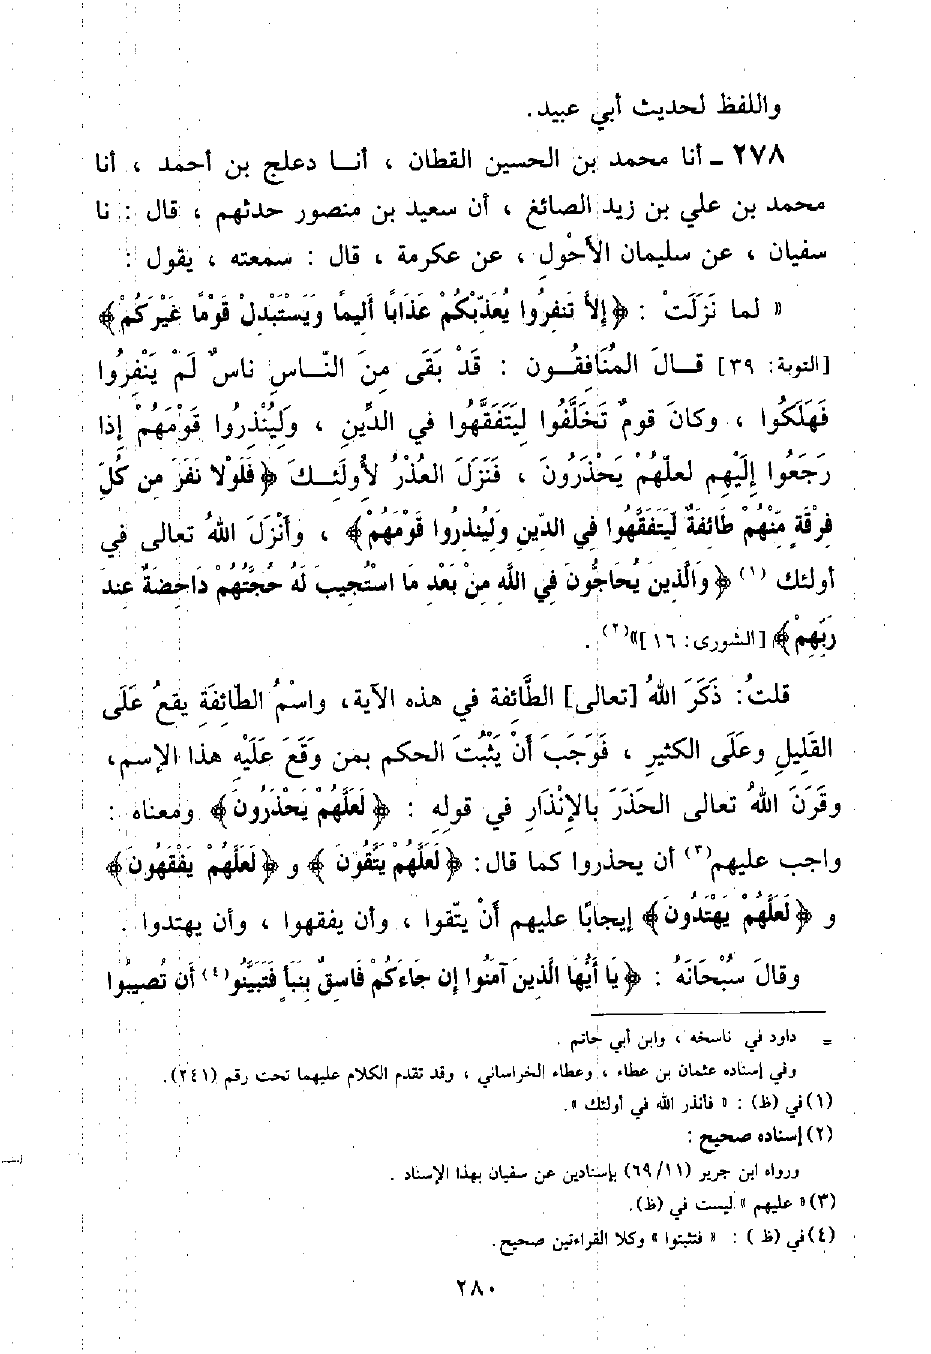 واللفظ لحديث أبي عبيد.
٢٧٨ ـ أنا محمد بن الحسين القطان ، أنا دعلج بن أحمد ، أنا
محمد بن علي بن زيد الصائغ ، أن سعيد بن منصور حدثهم ، قال : نا
سفيان ، عن سليمان الأحْول ، عن عكرمة ، قال : سمعته ، يقول :
« لما نَزَلَتْ : ﴿إلاَّ تَنفِرُوا يُعَذِّبْكُمْ عَذَابًا أَلِيمًا وَيَسْتَبْدِلْ قَوْمًا غَيْرَكُمْ﴾
[التوبة: ٣٩] قَالَ المُنَافِقُون : قَدْ بَقَى مِنَ النَّاسِ نَاسٌ لَمْ يَنْفِرُوا
فَهَلَكُوا ، وكانَ قومٌ تَخَلَّفُوا لِيَتَفَقَّهُوا في الدِّينِ ، وَلِيُنْذِرُوا قَوْمَهُمْ إذا
رَجَعُوا إلَيْهِم لعلّهُمْ يَحْذَرُونَ ، فَنَزَلَ العُذْرُ لأولَئِكَ ﴿فَلَوْلا نَفَرَ مِن كُلِّ
فِرْقَةٍ مِّنْهُمْ طَائِفَةٌ لِّيَتَفَقَّهُوا فِي الدِّينِ وَلِيُنذِرُوا قَوْمَهُمْ﴾ ، وأنْزَلَ اللهُ تعالى في
أولئك (١) ﴿وَالَّذِينَ يُحَاجُّونَ فِي اللَّهِ مِنْ بَعْدِ مَا اسْتُجِيبَ لَهُ حُجَّتُهُمْ دَاحِضَةٌ عِندَ
رَبِّهِمْ﴾ [الشورى: ١٦]»(٢) .
قلتُ: ذَكَرَ اللهُ [تعالى] الطَّائِفة في هذه الآية، واسْمُ الطَائِفَةِ يقعُ عَلَى
القَلِيلِ وعَلَى الكثيرِ ، فَوَجَبَ أنْ يَثْبُتَ الحكم بمن وَقَعَ عَلَيْهِ هذا الإسم،
وقَرَنَ اللهُ تعالى الحَذَرَ بالإنْذَارِ في قولِهِ : ﴿لَعَلَّهُمْ يَحْذَرُونَ﴾ ومعناه :
واجب عليهم(٣) أن يحذروا كما قال: ﴿لَعَلَّهُمْ يَتَّقُونَ ﴾ و ﴿لَعَلَّهُمْ يَفْقَهُونَ﴾
و ﴿لَعَلَّهُمْ يَهْتَدُونَ﴾ إيجابًا عليهم أنْ يتّقوا ، وأن يفقهوا ، وأن يهتدوا .
وقالَ سُبْحَانَهُ : ﴿يَا أَيُّهَا الَّذِينَ آمَنُوا إن جَاءَكُمْ فَاسِقٌ بِنَبَأٍ فَتَبَيَّنُو(٤) أن تُصِيبُوا
= داود في ناسخه ، وابن أبي حاتم .
وفي إسناده عثمان بن عطاء ، وعطاء الخراساني ، وقد تقدم الكلام عليهما تحت رقم (٢٤١).
(١) في (ظ) : « فأنذر الله في أولئك ».
(٢) إسناده صحيح :
ورواه ابن جرير (٦٩/١١) بإسنادين عن سفيان بهذا الإسناد .
(٣) « عليهم » ليست في (ظ).
(٤) في (ظ ) : « فتثبتوا » وكلا القراءتين صحيح.
٢٨٠